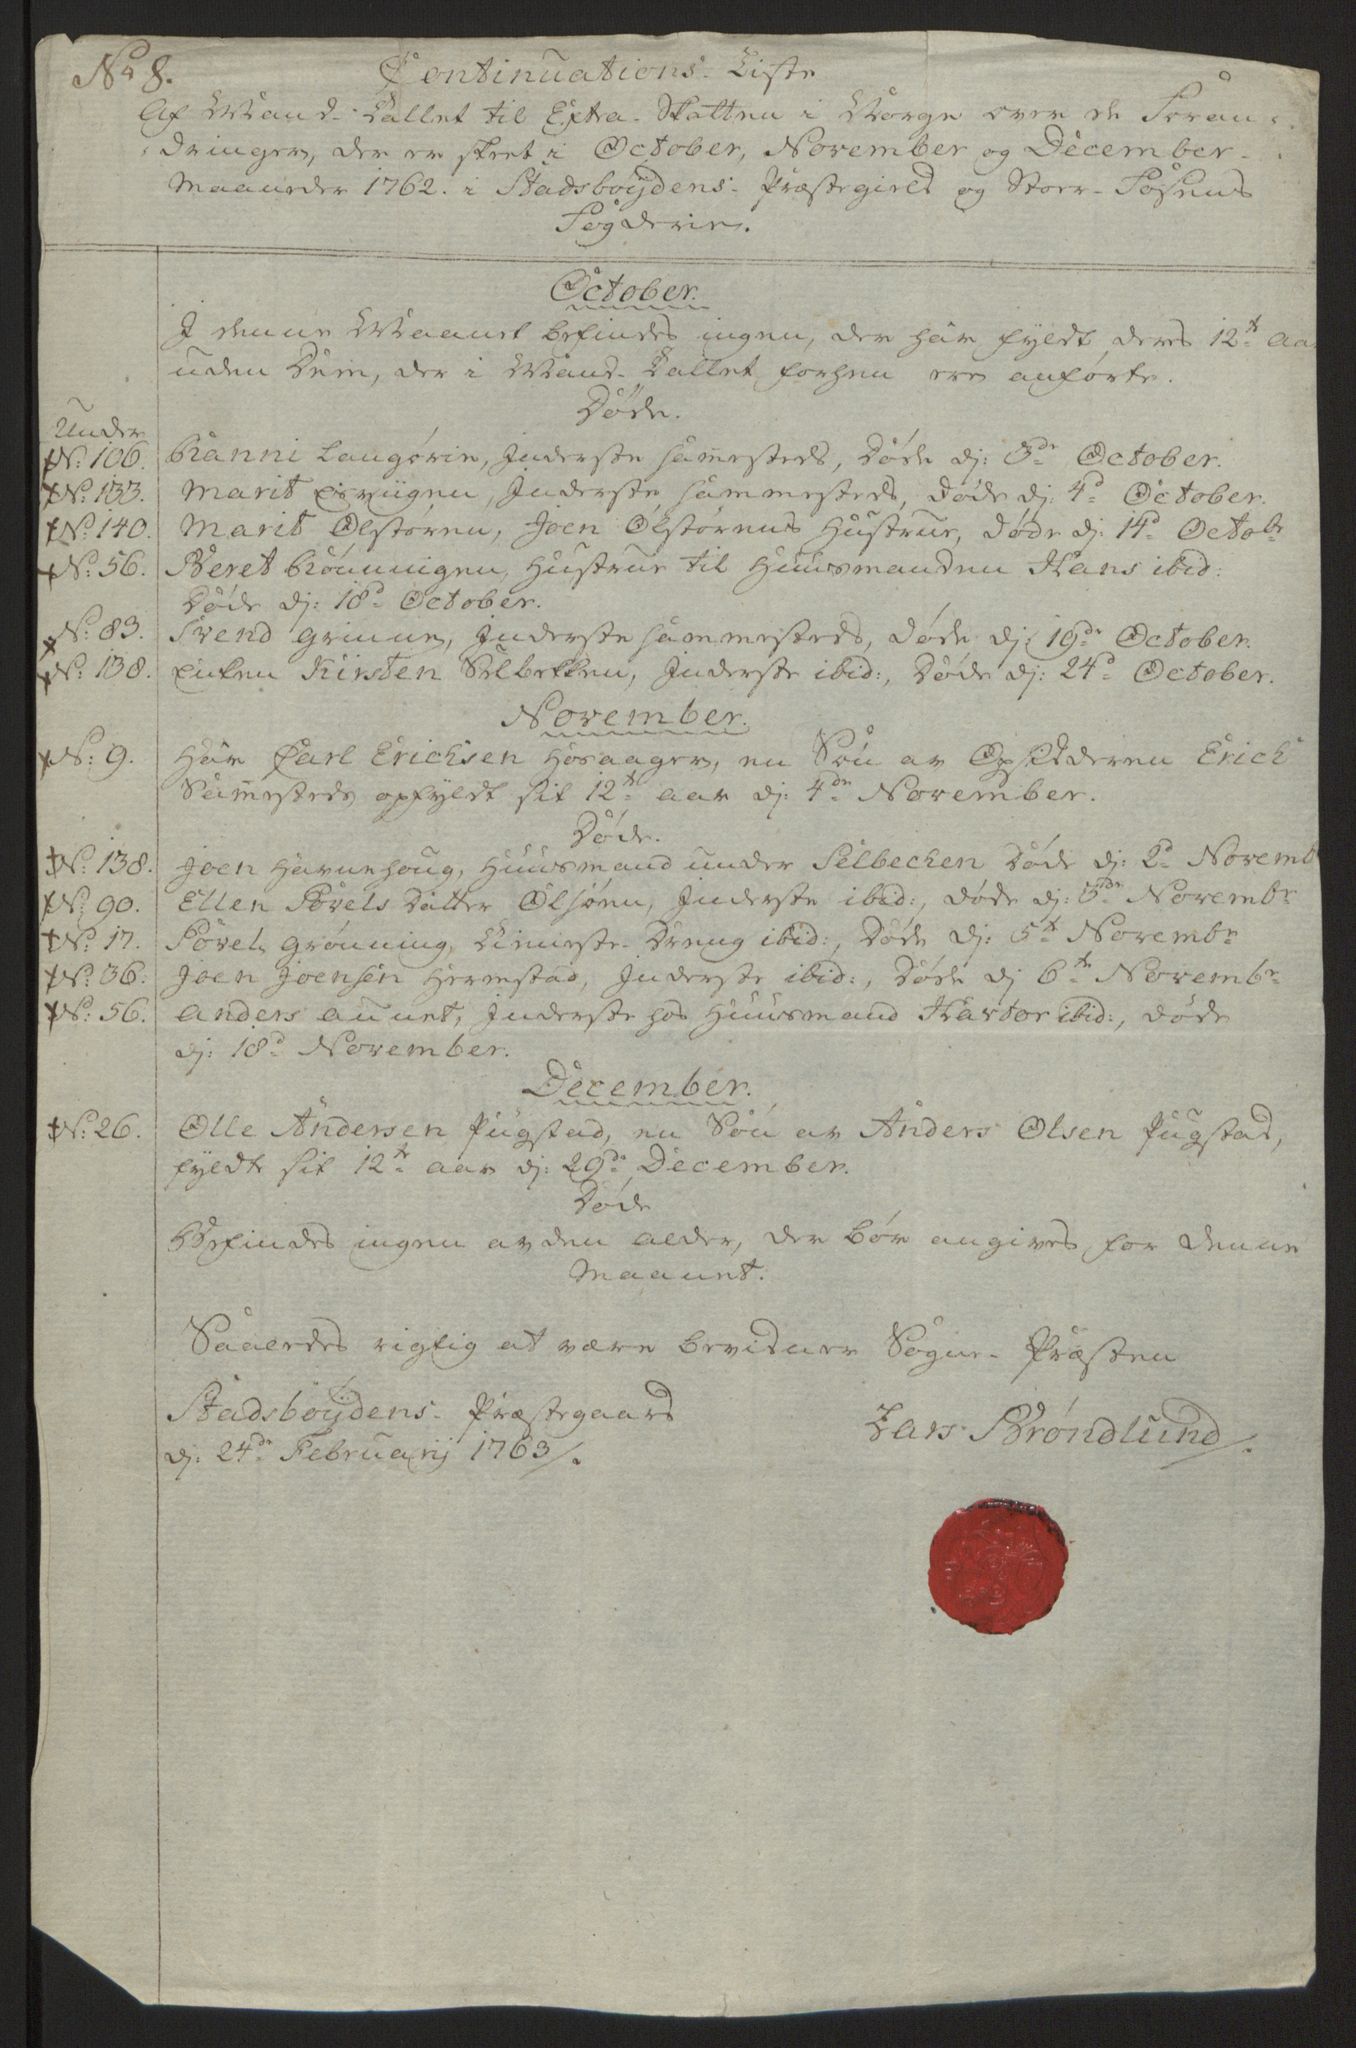 No 8.
Continuations-Liste
Af Mand-Tallet til Extra-Skatten i Norge over de Foran-
dringer, der er skeet i October, November og December-
Maaneder 1762. i Stadsboÿdens-Præstegield og Stoer-Fosens
Fogderie.
October.
I denne Maanet befindes ingen, der har fyldt deres 12te Aar
uden Dem, der i Mand-Tallet forhen ere anførte.
Døde.
Under
No: 106. Ranni Langørin, Inderste sammesteds, Døde dj: 3de October.
No: 133. Marit , Inderste sammesteds, døde dj: 4d October.
No: 140. Marit Olstøren, Joen Olstørens Hustrue, døde dj: 14d Octobr
No: 56. Beret Rønningen, Hustrue til Huusmanden Hans ibid:
Døde dj: 18d October.
No: 83. Svend Grinne, Inderste sammesteds, døde dj: 19de October.
No: 138. Enken Kirsten Selbekken, Inderste ibid:, Døde dj: 24d October.
November.
No: 9. Har Carl Erichsen Hosaager, en Søn av Opsidderen Erich
Sammesteds opfyldt sit 12te aar dj: 4de November.
Døde.
No: 138. Joen Havnehoug, Huusmand under Selbechen Døde dj: 2d Novemb
No: 90. Ellen Povels Datter Olsøen, Inderste ibid:, døde dj: 3de Novembr
No: 17. Povel Grønning, Tieneste-Dreng ibid:, Døde dj: 5te Novembr
No: 36. Joen Joensen Hermstad, Inderste ibid:, Døde dj 6te Novembr
No: 56. Anders Aunet, Inderste hos Huusmand Hartor ibid:, døde
dj: 18d November.
December.
No: 26. Olle Andersen Pugstad, en Søn av Anders Olsen Pugstad,
fyldte sit 12te aar dj: 29de December.
Døde
Befindes ingen av den alder, der bør angives for denne
Maanet.
Saaledes rigtig at være bevidner Sogne-Præsten
Stadsboÿdens-Præstegaard
dj: 24de Februarij 1763/.
Lars Brøndlund/.